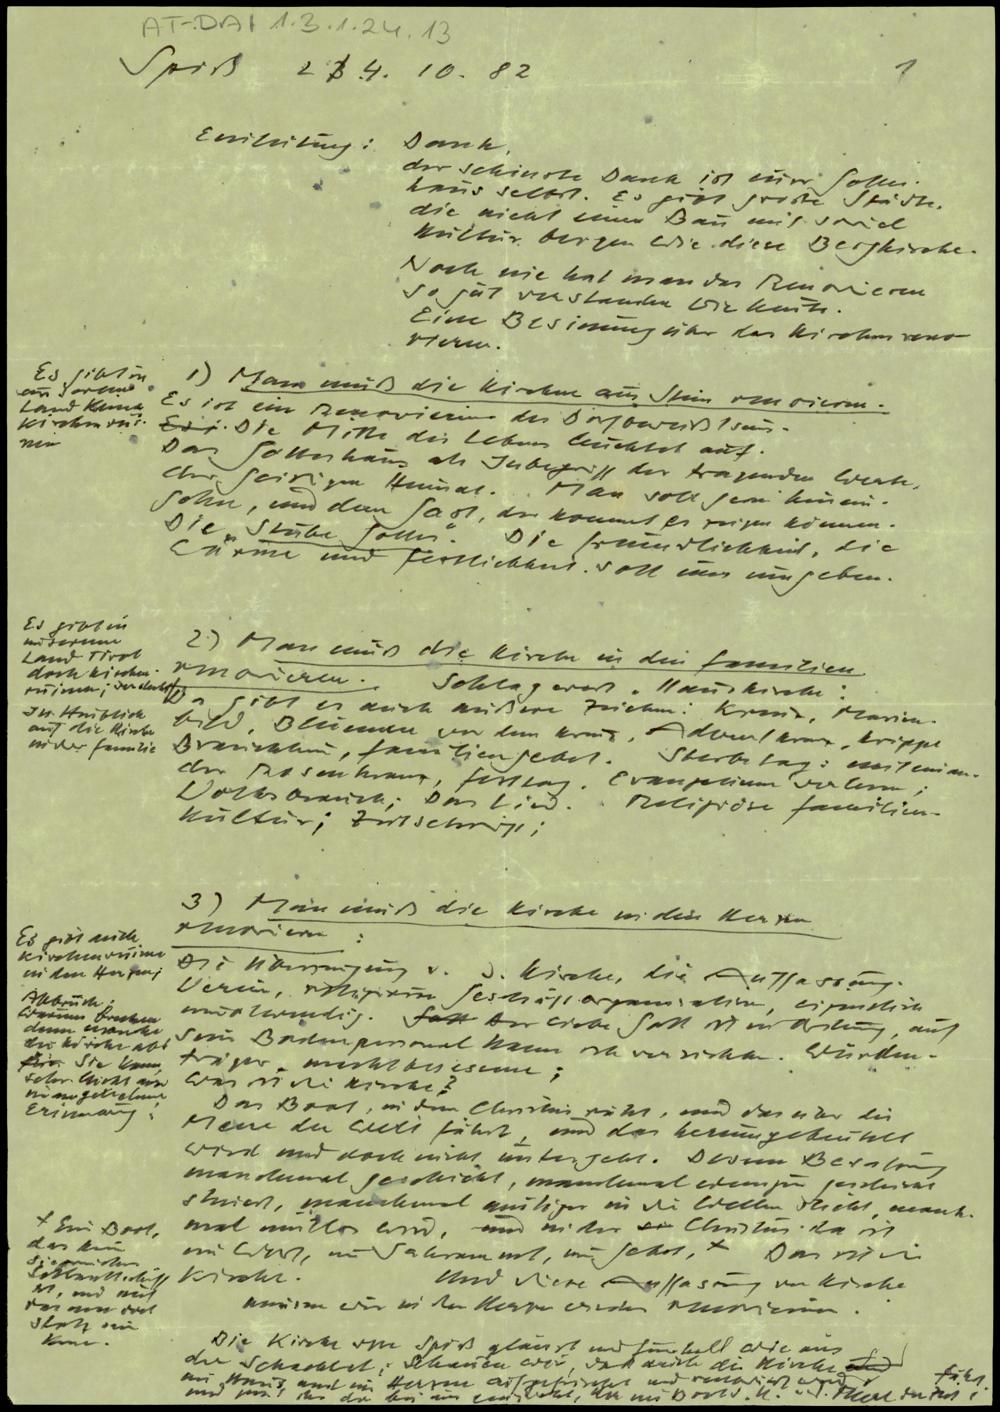 AT-DAI 1.3.1.24.13
Spiß 24. 10. 82 1
Einleitung: Dank.
der schönste Dank ist euer Gottes-
haus selbst. Es gibt große Städte,
die nicht einen Bau mit soviel
Kultur bergen wie diese Bergkirche.
Noch nie hat man das Renovieren
so gut verstanden wie heute.
Eine Besinnung über das Kirchenreno-
vieren.
Es gibt in
unserem
Land keine
Kirchenrui-
nen
1) Man muß die Kirche aus Stein renovieren.
Es ist ein Renovieren des Dorfbewußtseins.
Die Mitte des Lebens leuchtet auf.
Das Gotteshaus als Inbegriff der tragenden Werte,
der geistigen Heimat. Man soll gern hinein-
gehen, und dem Gast, der kommt es zeigen können.
Die "Stube Gottes". Die Freundlichkeit, die
Wärme und Festlichkeit soll uns umgeben.
Es gibt in
unserem
Land Tirol
doch Kirchen-
ruinen;
Im Hinblick
auf die Kirche
in der Familie
2) Man muß die Kirche in den Familien
renovieren. Schlagwort "Hauskirche":
Da gibt es auch äußere Zeichen: Kreuz, Marien-
bild, Blumen vor dem Kreuz, Adventkranz, Krippe
Brauchtum, Familiengebet. Sterbetag: miteinan-
der Rosenkranz, Festtag. Evangelium vorlesen;
Volksbrauch; Das Lied. Religiöse Familien-
kultur; Zeitschrift;
3) Man muß die Kirche in den Herzen
renovieren:
Es gibt auch
Kirchenruinen
in den Herzen;
Abbruch:
Warum brechen
denn manche
die Kirche ab?
Sie kann
sehr leicht
Erinnerung:
Die Überzeugung v. d. Kirche, die Auffassung.
Verein, religiöse Geschäftsorganisation, eigentlich
unnotwendig. Der liebe Gott ist in Ordnung, auf
sein Bodenpersonal kann ich verzichten. Würden-
träger, machtbesessene;
Was ist die Kirche?
Das Boot, in dem Christus ruht, und das über die
Meere der Welt fährt, und das herumgebeutelt
wird und doch nicht untergeht. Dessen Besatzung
manchmal geschickt, manchmal weniger geschickt
steuert, manchmal mutiger in die Wellen sticht, manch-
mal mutlos wird, und in der Christus da ist
im Wort, im Sakrament, im Gebet, + Das ist die
Kirche. Und diese Auffassung von Kirche
müssen wir in den Herzen wieder renovieren.
+ Ein Boot,
das kein
Schlachtschiff
ist, und auf
das man doch
stolz sein
kann.
Die Kirche von Spiß glänzt und funkelt wie aus
der Schachtel; Schauen wir, daß auch die Kirche
im Haus und im Herzen aufgefrischt und renoviert wird